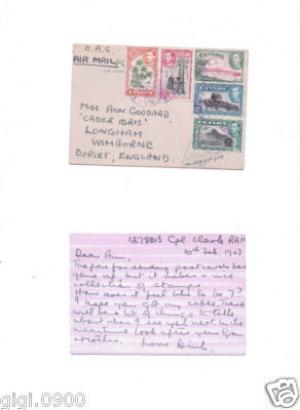 O.A.S.
AIR MAIL
CEYLON
CEYLON
CEYLON
CEYLON
CEYLON
MISS ANN GODDARD
'CADER IDRIS'
LONGHAM
WIMBORNE
DORSET, ENGLAND.
1278015 Cpl Clark RAF
10th Feb. 1943
Dear Ann,
The price for sending postcards has
gone up but it makes a nice
collection of stamps.
How does it feel to be 7?
I hope you got my cable. There
will be a lot of things to talk
about when I see you next. In the
meantime look after your
mother. Love
© gigi.0900